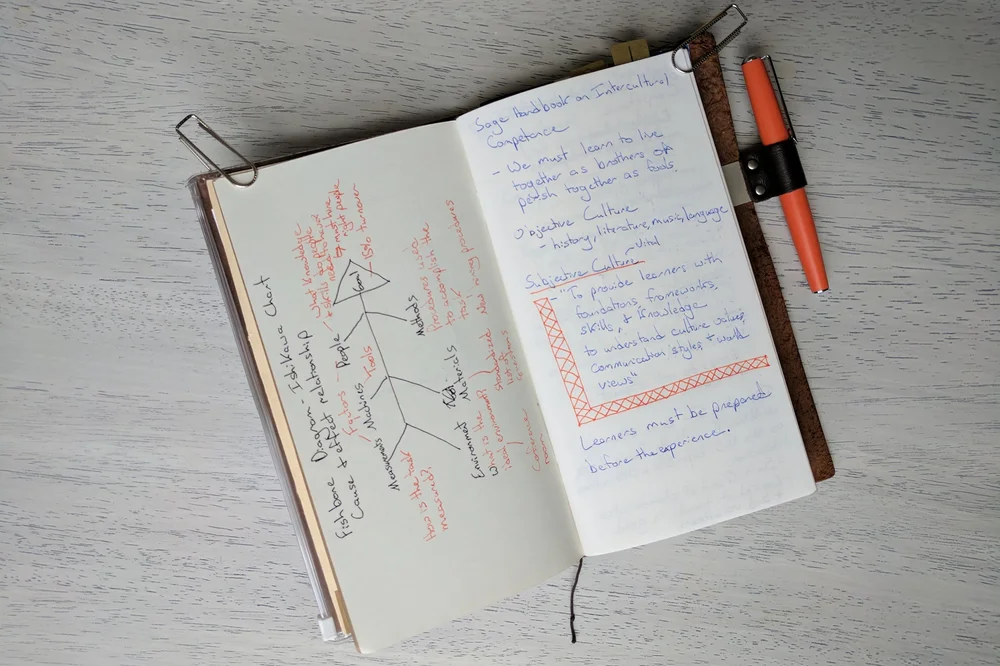 Fishbone Diagram - Ishikawa Chart
Cause & effect relationship
Goal
150% turnover
People
/ What knowledge
skills do people
need to have
or must hire
right people
Machines
Tools
Measurements
How is the task
measured?
Methods
Procedures used
to accomplish the
task
Materials
standardized
list of
questions
Environment
What is the
ideal environment?
Conference
room
Sage Handbook on Intercultural
Competence
- We must learn to live
together as brothers or
perish together as fools.
Objective Culture
- history, literature, music, language
Subjective Culture - Vital
- "To provide learners with
foundations, frameworks,
skills, & knowledge
to understand culture values,
communication styles, & world
views"
Learners must be prepared
before the experience.